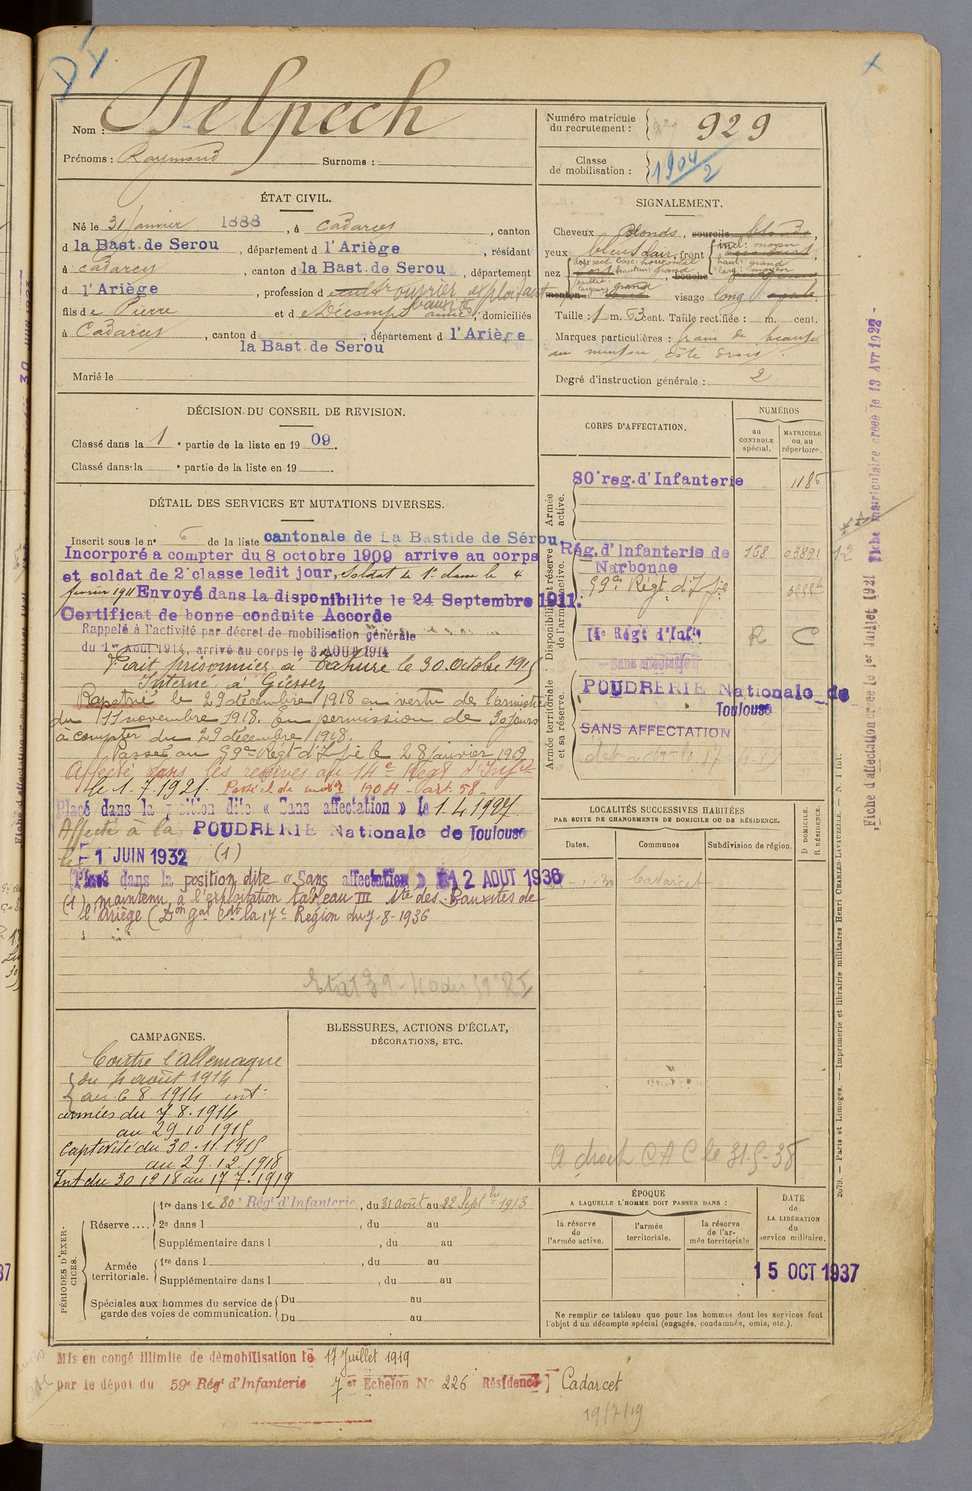 Nom : Delpech
Prénoms : Raymond Surnoms :
Numéro matricule du recrutement : 929
Classe de mobilisation : 1904/2
ÉTAT CIVIL.
Né le 31 janvier 1888, à Cadarcet, canton
d la Bast. de Serou, département d l'Ariège, résidant
à Cadarcet, canton d la Bast. de Serou, département
d l'Ariège, profession d cult ouvrier exploitant bauxite
fils de Pierre et de Décamps, domiciliés
à Cadarcet, canton d la Bast. de Serou, département d l'Ariège
Marié le
SIGNALEMENT.
Cheveux blonds, sourcils blonds,
yeux bleus clair, front incl: moyen haut: grand larg: moyen
nez dos rect. base: horizontal hauteur grand, bouche
menton visage long
Taille : 1 m. 63 cent. Taille rectifiée : m. cent.
Marques particulières : grain de beauté
au menton, côté droit.
Degré d'instruction générale : 2
DÉCISION DU CONSEIL DE REVISION.
Classé dans la 1e partie de la liste en 1909.
Classé dans la e partie de la liste en 19
DÉTAIL DES SERVICES ET MUTATIONS DIVERSES.
Inscrit sous le n° 6 de la liste cantonale de La Bastide de Sérou
Incorporé a compter du 8 octobre 1909 arrive au corps
et soldat de 2e classe ledit jour, Soldat de 1e classe le 4
février 1911 Envoyé dans la disponibilite le 24 Septembre 1911.
Certificat de bonne conduite Accorde
Rappelé à l'activité par décret de mobilisation générale
du 1er Aout 1914, arrivé au corps le 3 AOUT 1914
Fait prisonnier à Tahure le 30 Octobre 1915
Interné à Giessen
Rapatrié le 29 décembre 1918 en vertu de l'armistice
du 11 novembre 1918. en permission de 30 jours
à compter du 29 décembre 1918.
Passé au 59e Régt d'Infie le 28 janvier 1919
Affecté dans les réserves au 14e Régt d'Infie
le 1.7.1921. Passé cl. de mob. 1904. art. 58.
Placé dans la position dite « Sans affectation » le 1.4.1927
Affecté à la POUDRERIE Nationale de Toulouse
le 1 JUIN 1932 (1)
Placé dans la position dite « Sans affectation » le 12 AOUT 1936
(1) maintenu à l'exploitation tableau III Mte des Bauxites de
l'Ariège (Don gal Cdt la 17e Région du 7-8-1936
CORPS D'AFFECTATION.
NUMÉROS
au CONTROLE spécial.
MATRICULE ou au répertoire.
Armée active.
80e reg. d'Infanterie 1185
Disponibilité et réserve de l'armée active.
Rég. d'Infanterie de Narbonne 168 03891
59e Régt d'Infie
14e Régt d'Infie R C
Sans affectation
Armée territoriale et sa réserve.
POUDRERIE Nationale de Toulouse
SANS AFFECTATION
LOCALITÉS SUCCESSIVES HABITÉES
PAR SUITE DE CHANGEMENTS DE DOMICILE OU DE RÉSIDENCE.
Dates. Communes Subdivision de région. D DOMICILE. R RÉSIDENCE.
Cadarcet
A droit CAC le 31-5-38
CAMPAGNES.
Contre l'Allemagne
du 4 août 1914
au 6 8 1914 int.
armées du 7.8.1914
au 29 10 1915
captivité du 30.11.1915
au 29.12.1918
Int du 30 12 18 au 17 7.1919
BLESSURES, ACTIONS D'ÉCLAT,
DÉCORATIONS, ETC.
PÉRIODES D'EXERCICES.
Réserve .... 1re dans le 80e Régt d'Infanterie, du 31 août au 22 Septbre 1913
2e dans l , du au
Supplémentaire dans l , du au
Armée territoriale. 1re dans l , du au
Supplémentaire dans l , du au
Spéciales aux hommes du service de garde des voies de communication. Du au
Du au
ÉPOQUE
A LAQUELLE L'HOMME DOIT PASSER DANS :
la réserve de l'armée active.
l'armée territoriale.
la réserve de l'armée territoriale
DATE de LA LIBÉRATION du service militaire.
15 OCT 1937
Ne remplir ce tableau que pour les hommes dont les services font
l'objet d'un décompte spécial (engagés, condamnés, omis, etc.).
Mis en congé illimité de démobilisation le 17 Juillet 1919
par le dépôt du 59e Régt d'Infanterie 7er Echelon N° 226 Résidence Cadarcet
19/7/19
Fiche d'affectation créée le 1er Juillet 1921
Fiche matriculaire créée le 13 Avr 1922
2079. — Paris et Limoges. — Imprimerie et librairie militaires Henri CHARLES-LAVAUZELLE. — N. 1 int.